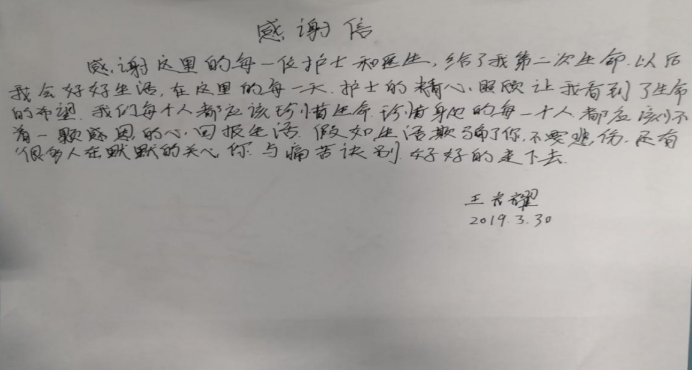 感谢信
感谢这里的每一位护士和医生,给了我第二次生命.以后
我会好好生活,在这里的每一天.护士的精心.照顾让我看到了生命
的希望.我们每个人都应该珍惜生命.珍惜身边的每一个人都应该怀
有一颗感恩的心.回报生活.假如生活欺骗了你,不要悲伤.还有
很多人在默默的关心你.与痛苦诀别.好好的走下去.
王 耀
2019.3.30